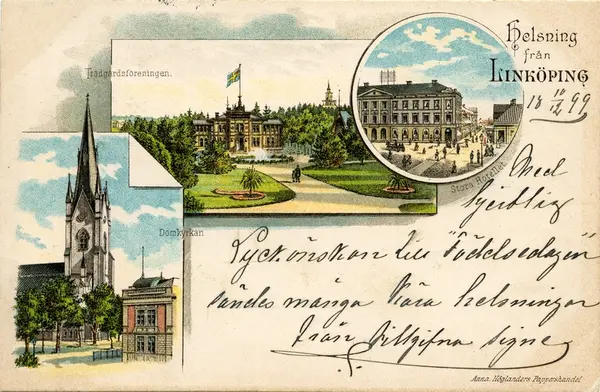 Helsning
från
LINKÖPING
18 10/12 99
Trädgårdsföreningen.
Stora Hotellet
Domkyrkan
Med
hjertlig
Lyckönskan till "Födelsedagen"
sändes många kära helsningar
från tillgifna Signe
Anna Höglanders Pappershandel